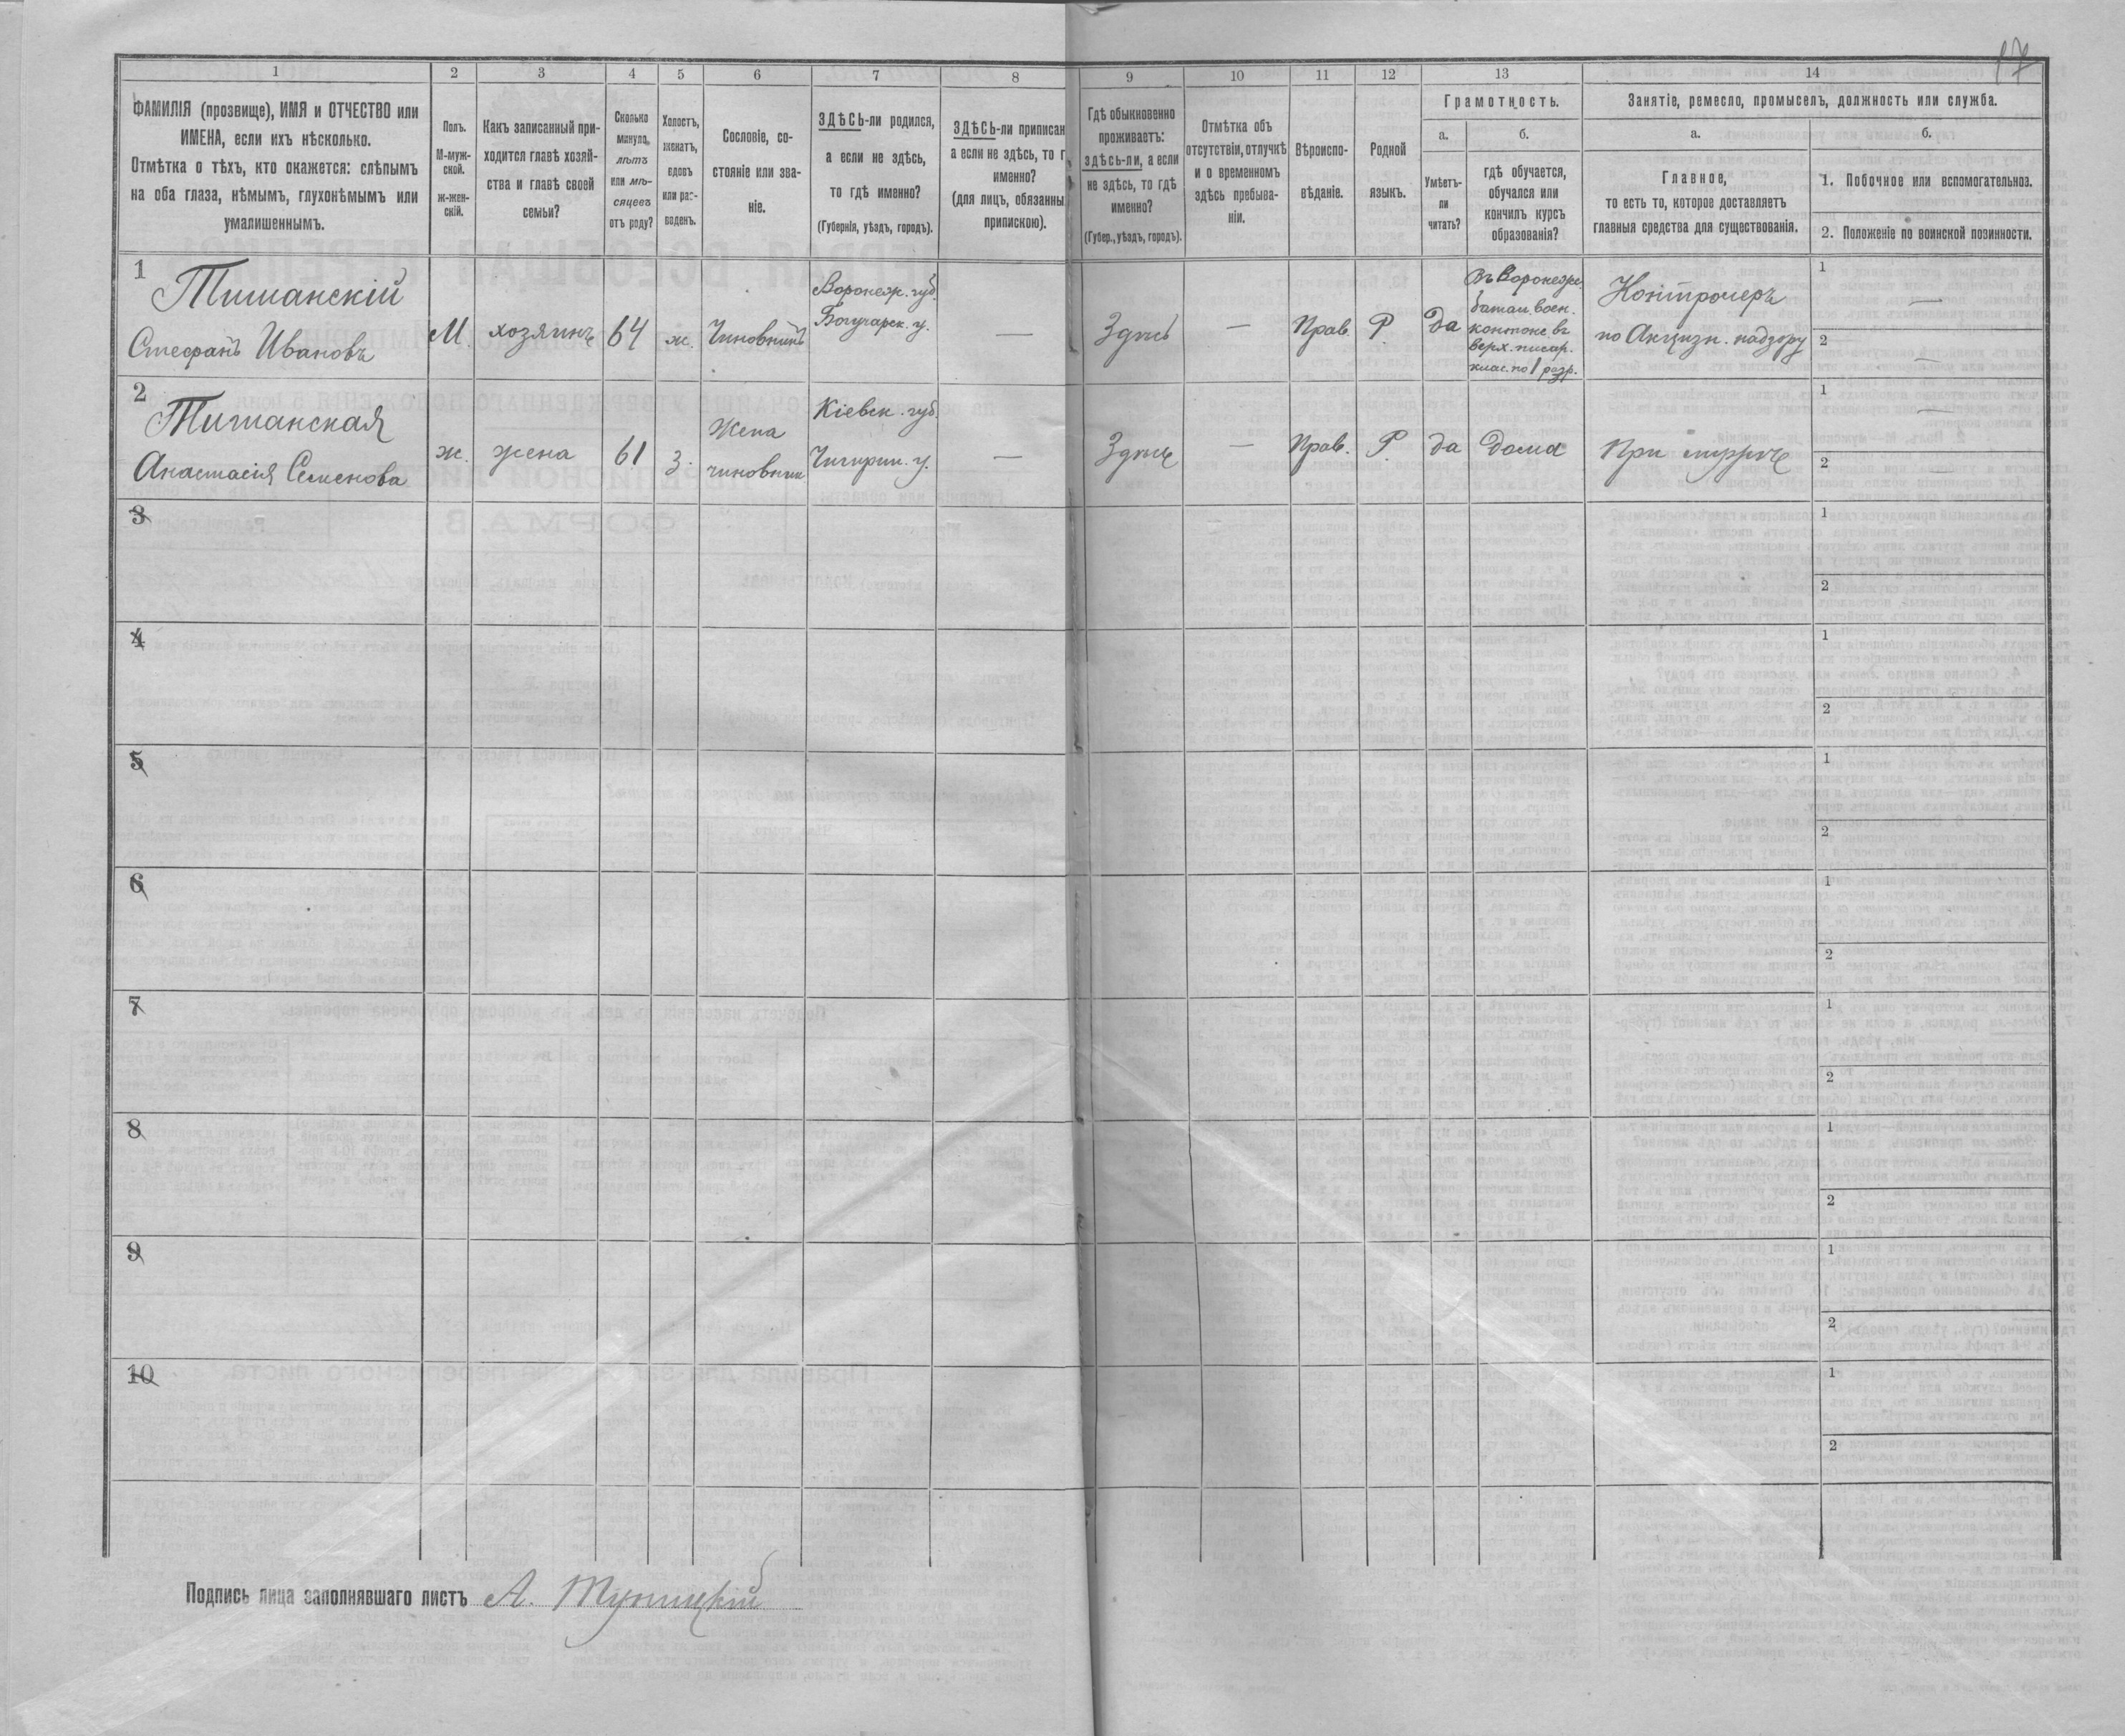 17
1
2
3
4
5
6
7
8
9
10
11
12
13
14
ФАМИЛІЯ (прозвище), ИМЯ и ОТЧЕСТВО или
ИМЕНА, если ихъ нѣсколько.
Отмѣтка о тѣхъ, кто окажется: слѣпымъ
на оба глаза, нѣмымъ, глухонѣмымъ или
умалишеннымъ.
Полъ.
М-муж-
ской.
ж-жен-
скій.
Какъ записанный при-
ходится главѣ хозяй-
ства и главѣ своей
семьи?
Сколько
минуло
лѣтъ
или мѣ-
сяцевъ
отъ роду?
Холостъ,
женатъ,
вдовъ
или раз-
веденъ.
Сословіе, со-
стояніе или зва-
ніе.
ЗДѢСЬ-ли родился,
а если не здѣсь,
то гдѣ именно?
(Губернія, уѣздъ, городъ).
ЗДѢСЬ-ли приписан
а если не здѣсь, то г
именно?
(для лицъ, обязанны
припискою).
Гдѣ обыкновенно
проживаетъ:
здѣсь-ли, а если
не здѣсь, то гдѣ
именно?
(Губер., уѣздъ, городъ).
Отмѣтка объ
отсутствіи, отлучкѣ
и о временномъ
здѣсь пребыва-
ніи.
Вѣроиспо-
вѣданіе.
Родной
языкъ.
Грамотность.
а.
Умѣетъ-
ли
читать?
б.
гдѣ обучается,
обучался или
кончилъ курсъ
образованія?
Занятіе, ремесло, промыселъ, должность или служба.
а.
Главное,
то есть то, которое доставляетъ
главныя средства для существованія.
б.
1. Побочное или вспомогательное.
2. Положеніе по воинской повинности.
1
Тишанскій
Стефанъ Ивановъ
М.
хозяинъ
64
ж.
Чиновникъ
Воронеж. губ.
Богучарск. у.
—
Здѣсь
—
Прав.
Р.
Да
Въ Воронеж.
батал. воен.
кантонс. въ
верх. писар.
клас. по 1 разр.
Контролеръ
по Акцизн. надзору
1
—
2
—
2
Тишанская
Анастасія Семенова
ж.
жена
61
з.
Жена
чиновник
Кіевск. губ.
Чигирин. у.
—
Здѣсь
—
Прав.
Р.
да
дома
При мужѣ
1
—
2
—
3
1
2
4
1
2
5
1
2
6
1
2
7
1
2
8
1
2
9
1
2
10
1
2
Подпись лица заполнявшаго листъ А. Туницкій